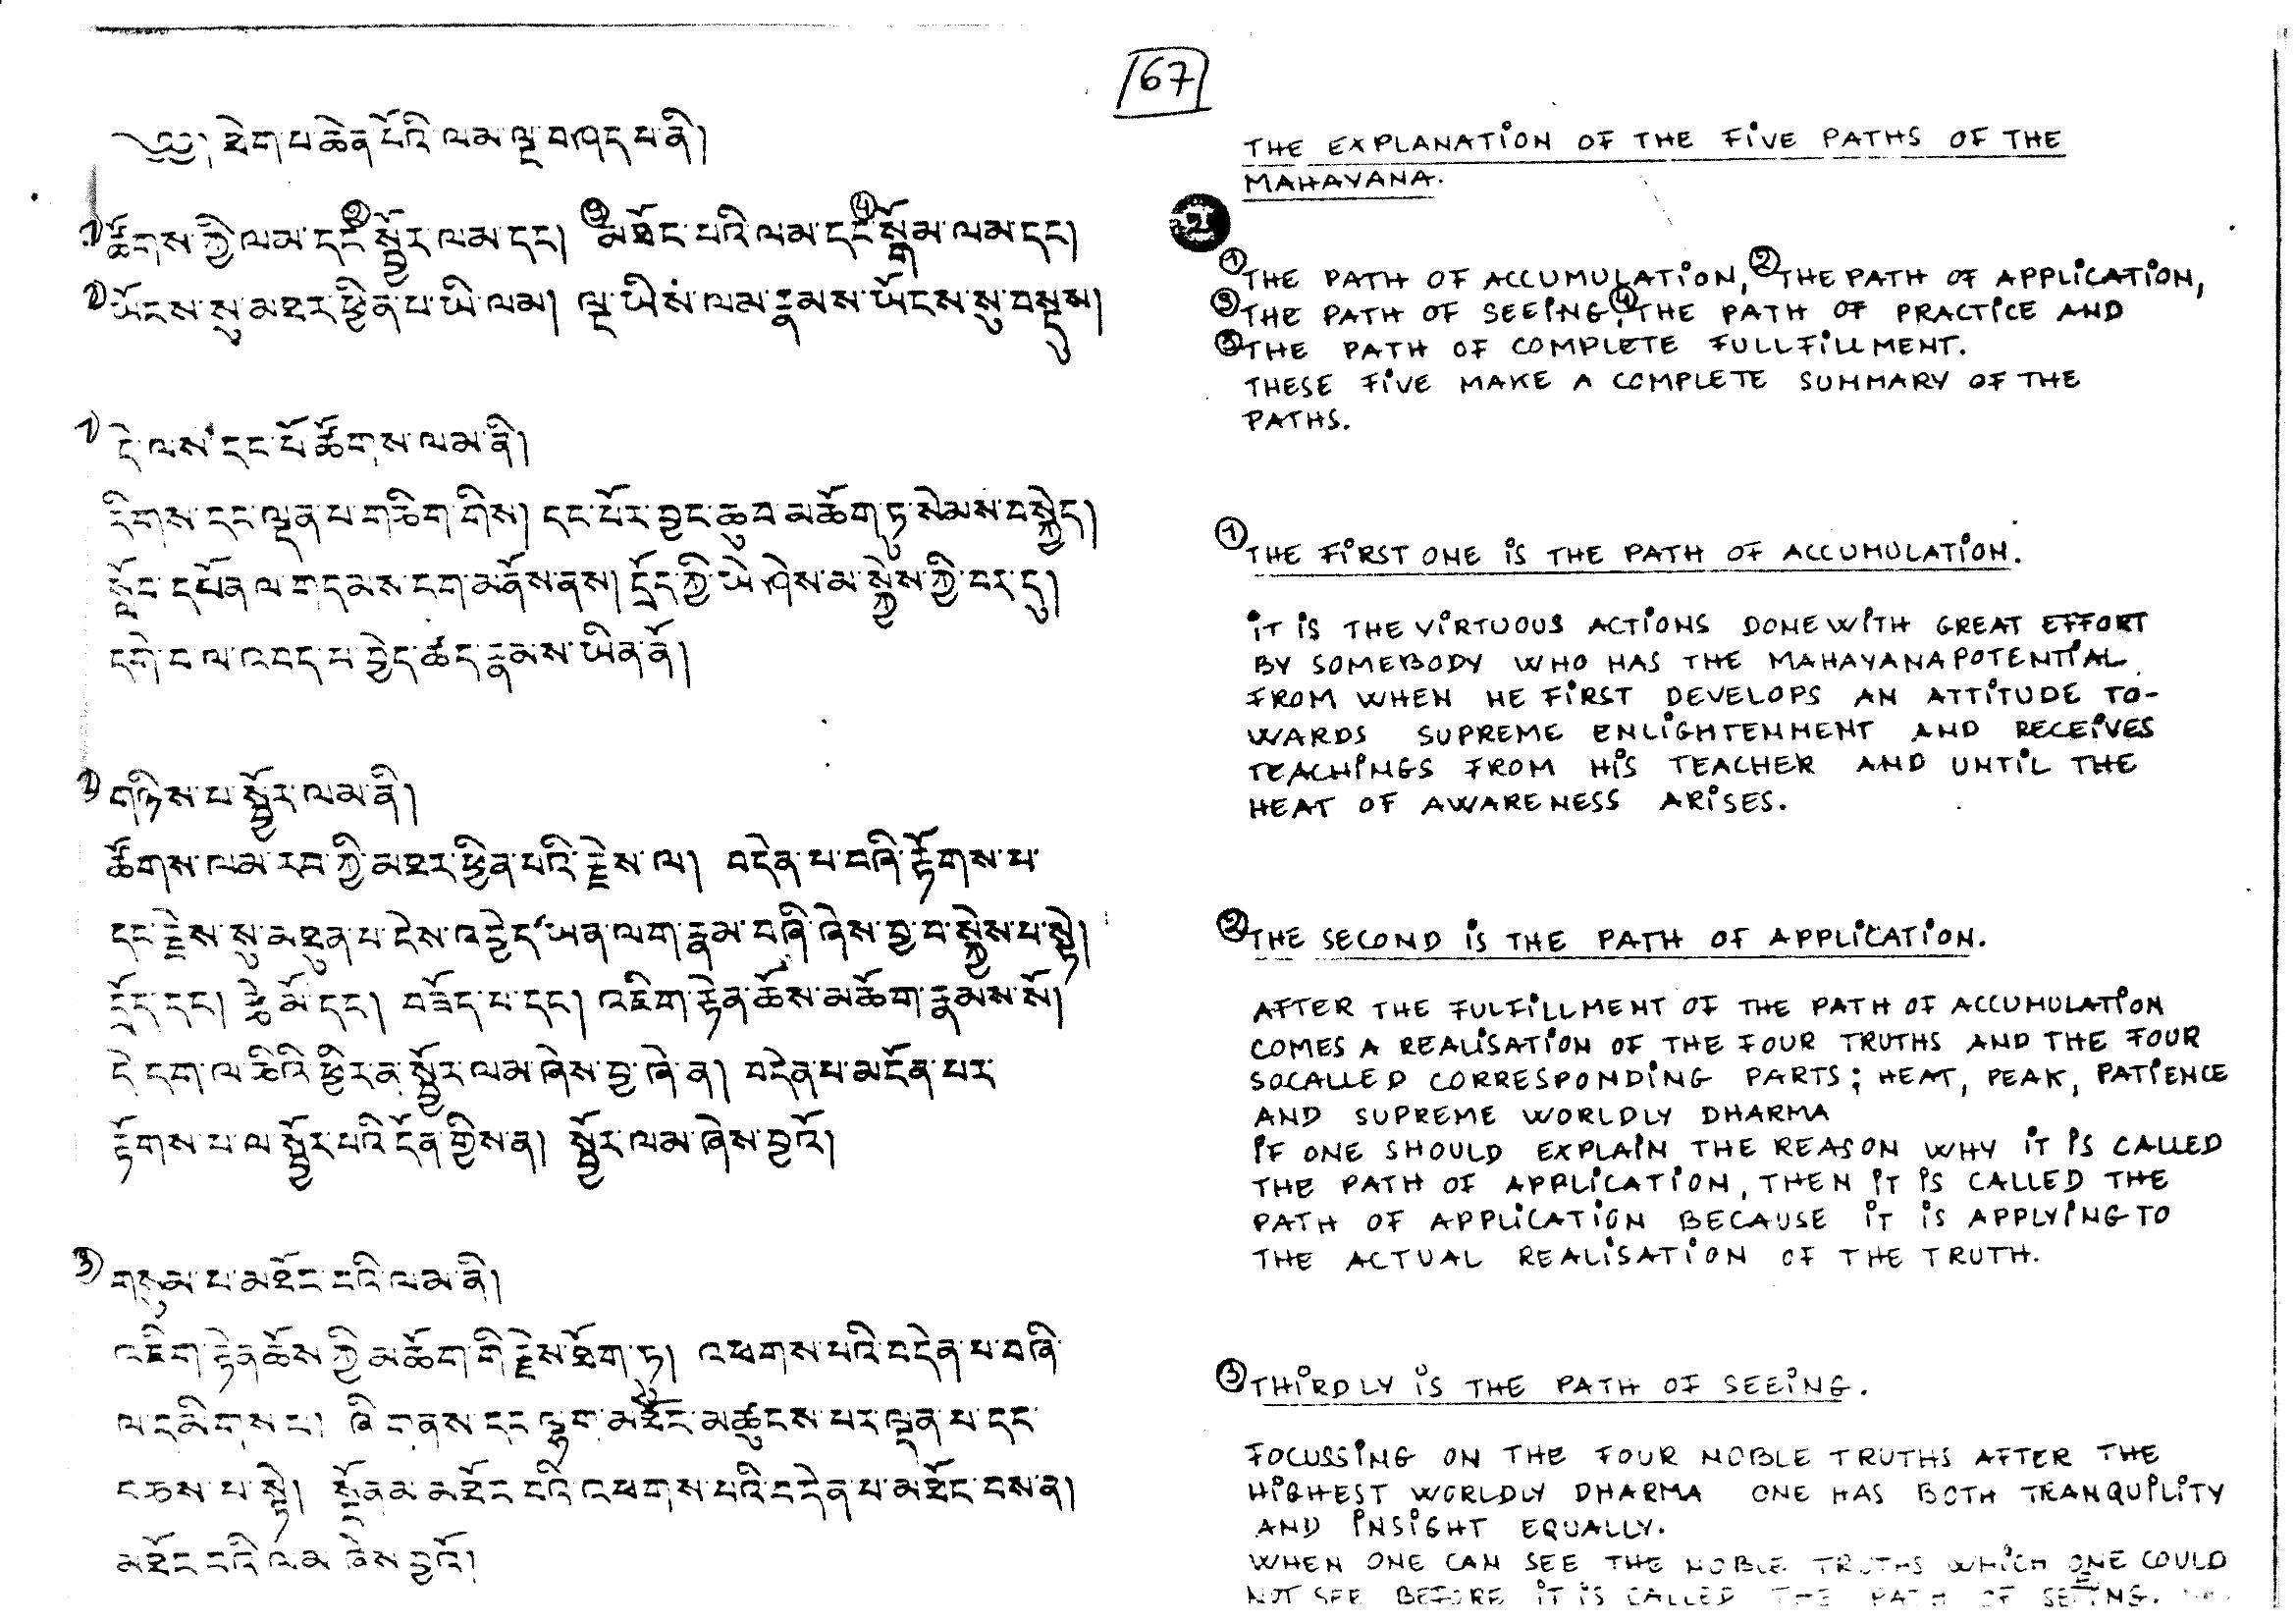 167
༄༅། ཐེག་པ་ཆེན་པོའི་ལམ་ལྔ་བཤད་པ་ནི།
1) ཚོགས་ཀྱི་ལམ་དང་ ② སྦྱོར་ལམ་དང། ③ མཐོང་པའི་ལམ་དང་ ④ སྒོམ་ལམ་དང།
ཡོངས་སུ་མཐར་ཕྱིན་པ་ཡི་ལམ། ལྔ་ཡིས་ལམ་རྣམས་ཡོངས་སུ་བསྡུས།
1) དེ་ལས་དང་པོ་ཚོགས་ལམ་ནི།
རིགས་དང་ལྡན་པ་གཅིག་གིས། དང་པོར་བྱང་ཆུབ་མཆོག་ཏུ་སེམས་བསྐྱེད།
སློང་དཔོན་ལ་གདམས་ངག་མནོས་ནས། དྲོད་ཀྱི་ཡེ་ཤེས་མ་སྐྱེས་ཀྱི་བར་དུ།
དགེ་བ་ལ་འབད་པ་བྱེད་ཚད་རྣམས་ཡིན་ནོ།
2) གཉིས་པ་སྦྱོར་ལམ་ནི།
ཚོགས་ལམ་རབ་ཀྱི་མཐར་ཕྱིན་པའི་རྗེས་ལ། བདེན་པ་བཞི་རྟོགས་པ་
དང་རྗེས་སུ་མཐུན་པ་ངེས་འབྱེད་ཡན་ལག་རྣམ་བཞི་ཞེས་བྱ་བ་སྐྱེས་པ་སྟེ།
དྲོད་དང། རྩེ་མོ་དང། བཟོད་པ་དང། འཇིག་རྟེན་ཆོས་མཆོག་རྣམས་སོ།
དེ་དག་ལ་ཅིའི་ཕྱིར་ན་སྦྱོར་ལམ་ཞེས་བྱ་ཞེ་ན། བདེན་པ་མངོན་པར་
རྟོགས་པ་ལ་སྦྱོར་པའི་དོན་གྱིས་ན། སྦྱོར་ལམ་ཞེས་བྱའོ།
3) གསུམ་པ་མཐོང་བའི་ལམ་ནི།
འཇིག་རྟེན་ཆོས་ཀྱི་མཆོག་གི་རྗེས་ཐོག་ཏུ། འཕགས་པའི་བདེན་པ་བཞི་
ལ་དམིགས་པ། ཞི་གནས་དང་ལྷག་མཐོང་མཚུངས་པར་ལྡན་པ་དང་
བཅས་པ་སྟེ། སྔོན་མ་མཐོང་བའི་འཕགས་པའི་བདེན་པ་མཐོང་བས་ན།
མཐོང་བའི་ལམ་ཞེས་བྱའོ།
THE EXPLANATION OF THE FIVE PATHS OF THE
MAHAYANA.
2
① THE PATH OF ACCUMULATION, ② THE PATH OF APPLICATION,
③ THE PATH OF SEEING, ④ THE PATH OF PRACTICE AND
⑤ THE PATH OF COMPLETE FULLFILLMENT.
THESE FIVE MAKE A COMPLETE SUMMARY OF THE
PATHS.
① THE FIRST ONE IS THE PATH OF ACCUMULATION.
IT IS THE VIRTUOUS ACTIONS DONE WITH GREAT EFFORT
BY SOMEBODY WHO HAS THE MAHAYANA POTENTIAL
FROM WHEN HE FIRST DEVELOPS AN ATTITUDE TO-
WARDS SUPREME ENLIGHTENMENT AND RECEIVES
TEACHINGS FROM HIS TEACHER AND UNTIL THE
HEAT OF AWARENESS ARISES.
② THE SECOND IS THE PATH OF APPLICATION.
AFTER THE FULFILLMENT OF THE PATH OF ACCUMULATION
COMES A REALISATION OF THE FOUR TRUTHS AND THE FOUR
SOCALLED CORRESPONDING PARTS; HEAT, PEAK, PATIENCE
AND SUPREME WORLDLY DHARMA
IF ONE SHOULD EXPLAIN THE REASON WHY IT IS CALLED
THE PATH OF APPLICATION, THEN IT IS CALLED THE
PATH OF APPLICATION BECAUSE IT IS APPLYING TO
THE ACTUAL REALISATION OF THE TRUTH.
③ THIRDLY IS THE PATH OF SEEING.
FOCUSSING ON THE FOUR NOBLE TRUTHS AFTER THE
HIGHEST WORLDLY DHARMA ONE HAS BOTH TRANQUILITY
AND INSIGHT EQUALLY.
WHEN ONE CAN SEE THE NOBLE TRUTHS WHICH ONE COULD
NOT SEE BEFORE IT IS CALLED THE PATH OF SEEING.